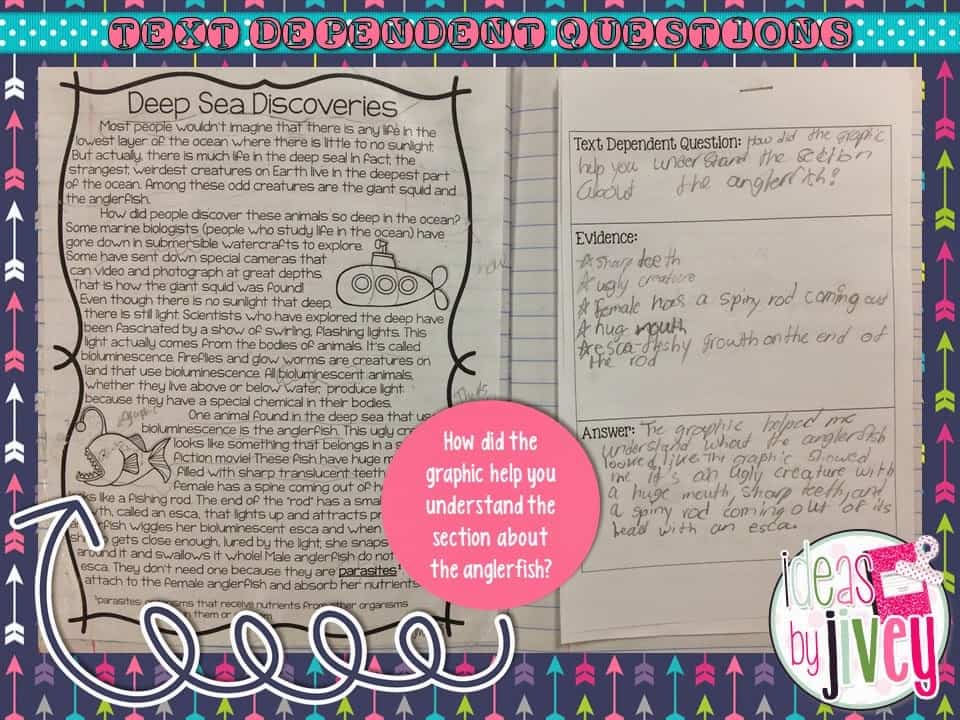 TEXT DEPENDENT QUESTIONS
Deep Sea Discoveries
Most people wouldn't imagine that there is any life in the
lowest layer of the ocean where there is little to no sunlight.
But actually, there is much life in the deep sea! In fact, the
strangest, weirdest creatures on Earth live in the deepest part
of the ocean. Among these odd creatures are the giant squid and
the anglerfish.
How did people discover these animals so deep in the ocean?
Some marine biologists (people who study life in the ocean) have
gone down in submersible watercrafts to explore.
Some have sent down special cameras that
can video and photograph at great depths.
That is how the giant squid was found!
Even though there is no sunlight that deep,
there is still light. Scientists who have explored the deep have
been fascinated by a show of swirling, flashing lights. This
light actually comes from the bodies of animals. It's called
bioluminescence. Fireflies and glow worms are creatures on
land that use bioluminescence. All bioluminescent animals,
whether they live above or below water, produce light
because they have a special chemical in their bodies.
One animal found in the deep sea that
bioluminescence is the anglerfish. This ugly
looks like something that belongs in a
fiction movie! These fish have huge
filled with sharp translucent teeth
female has a spine coming out of
like a fishing rod. The end of the "rod" has a small
called an esca, that lights up and attracts
wiggles her bioluminescent esca and when
gets close enough, lured by the light, she snaps
around it and swallows it whole! Male anglerfish do not
esca. They don't need one because they are parasites¹
attach to the female anglerfish and absorb her nutrients
¹parasites: organisms that receive nutrients from other organisms
them or
Text Dependent Question: How did the graphic
help you undershand the section
about the anglerfish?
Evidence:
☆sharp teeth
☆ugly creature
☆Female has a spiny rod coming out
☆hug mouth
☆esca-fishy growth on the end of
the rod
Answer: The graphic helped me
understand what the anglerfish
looked like. The graphic showed
me it's an ugly creature with
a huge mouth, sharp teeth, and
a spiny rod coming out of its
head with an esca.
How did the
graphic help you
understand the
section about
the anglerfish?
ideas
by
jivey